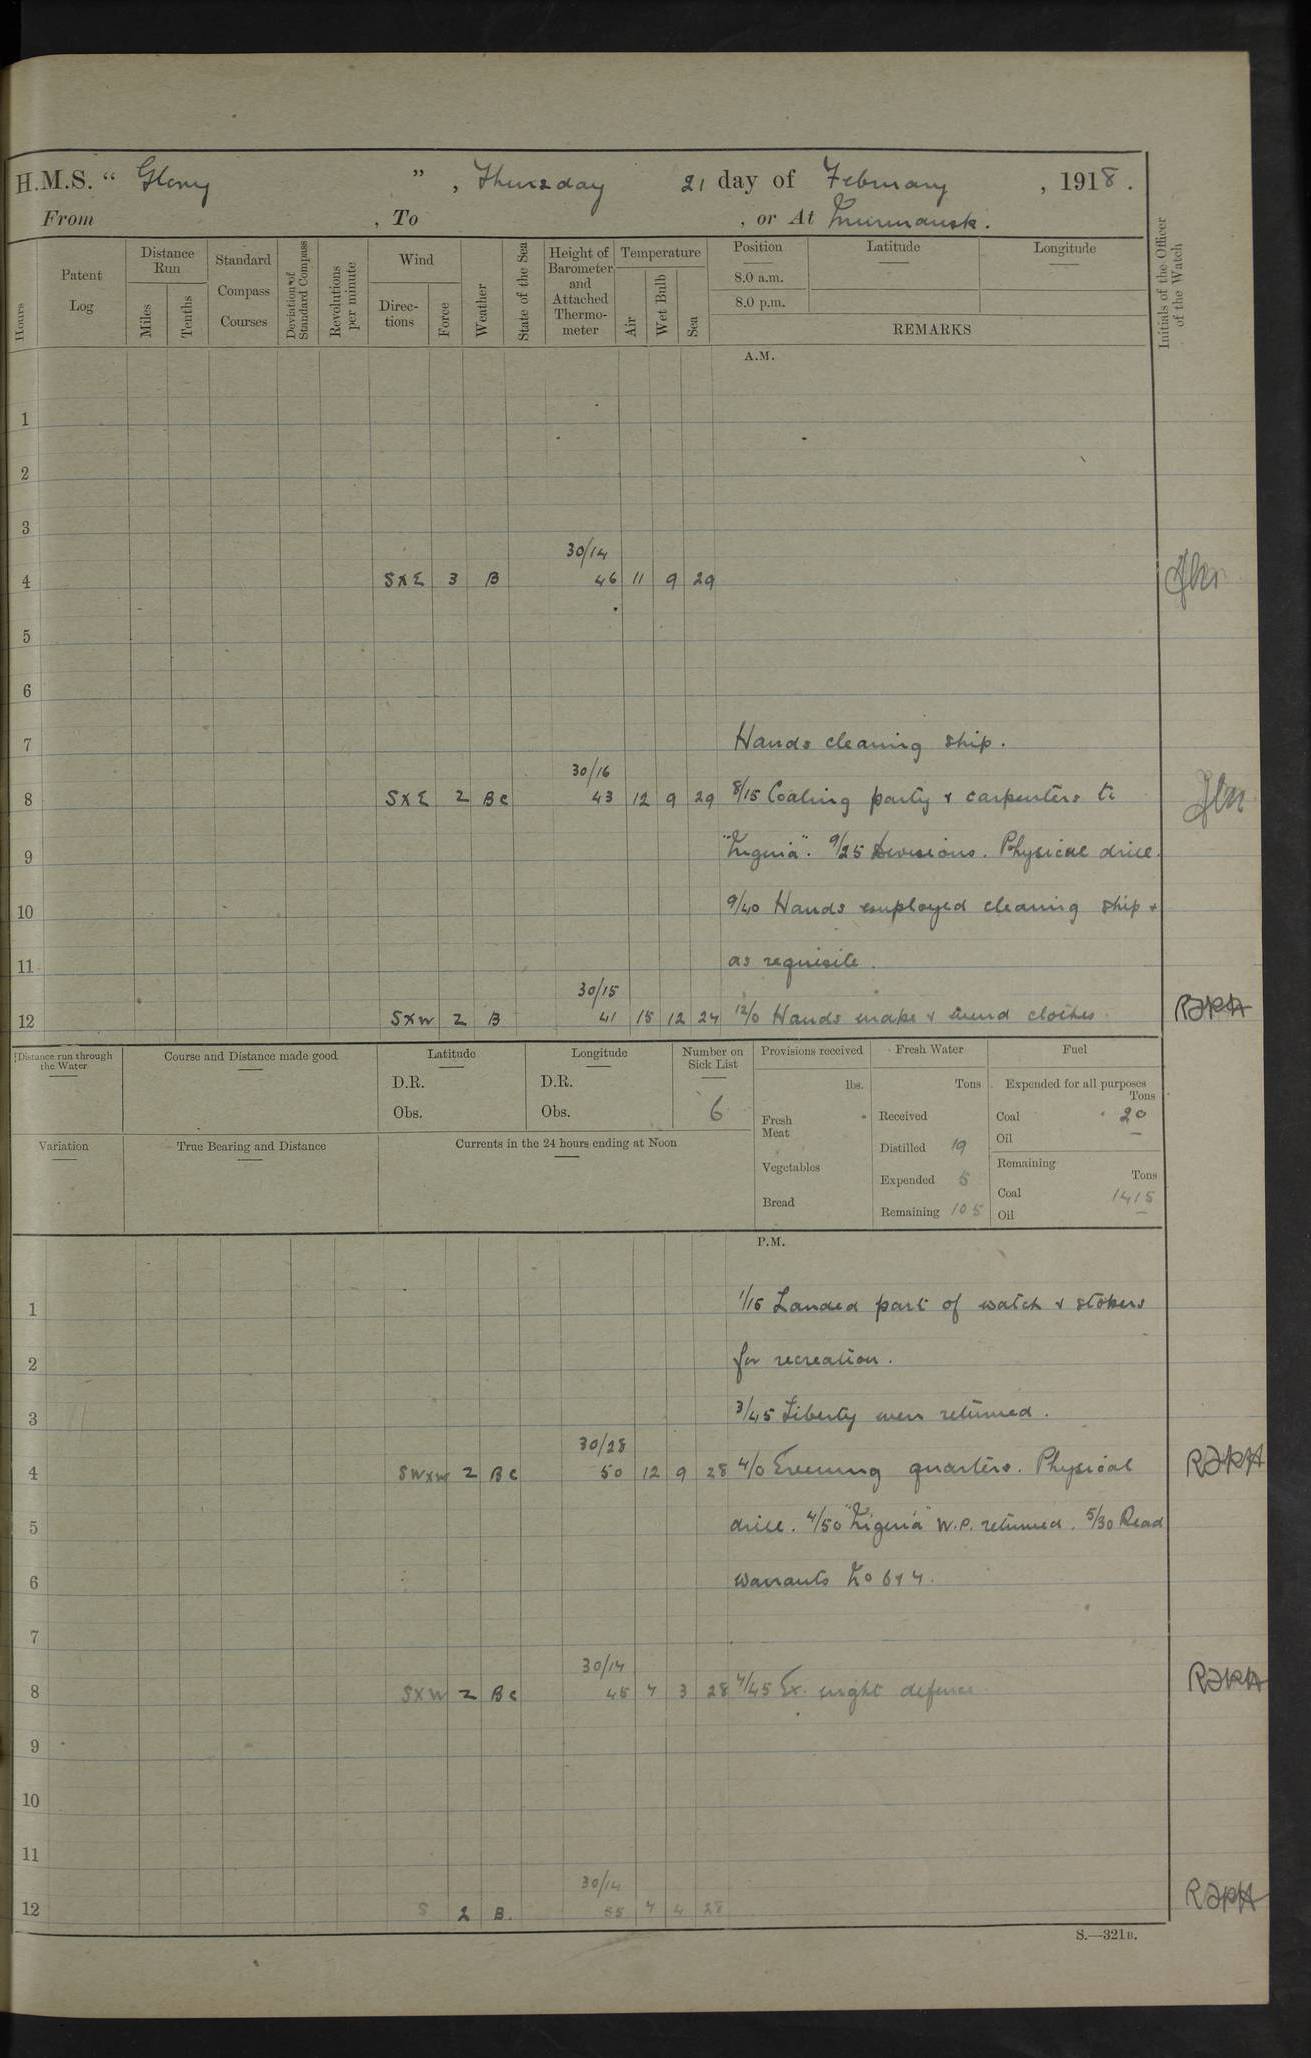 H.M.S. “ Glory ” , Thursday 21 day of February , 1918 .
From , To , or At Murmansk .
Hours
Patent Log
Distance Run
Miles
Tenths
Standard Compass Courses
Deviation of Standard Compass
Revolutions per minute
Wind
Direc- tions
Force
Weather
State of the Sea
Height of Barometer and Attached Thermo- meter
Temperature
Air
Wet Bulb
Sea
Position
8.0 a.m.
8.0 p.m.
Latitude
Longitude
REMARKS
Initials of the Officer of the Watch
A.M.
1
2
3
30/14
4 SXE 3 B 46 11 9 29
5
6
7 Hands cleaning ship.
30/16
8 SXE 2 BC 43 12 9 29 8/15 Coaling party & carpenters to
9 "Nigeria". 9/25 Divisions. Physical drill.
10 9/40 Hands employed cleaning ship &
11 as requisite.
30/15
12 SXW 2 B 41 15 12 27 12/0 Hands make & mend clothes
Distance run through the Water
Course and Distance made good
Latitude
D.R.
Obs.
Longitude
D.R.
Obs.
Number on Sick List
6
Provisions received
lbs.
Fresh Meat
Vegetables
Bread
Fresh Water
Tons
Received
Distilled 19
Expended 5
Remaining 105
Fuel
Expended for all purposes
Tons
Coal 20
Oil —
Remaining
Tons
Coal 1415
Oil —
Variation
True Bearing and Distance
Currents in the 24 hours ending at Noon
P.M.
1 1/15 Landed part of watch & stokers
2 for recreation.
3 3/45 Liberty men returned.
30/28
4 SWXW 2 BC 50 12 9 28 4/0 Evening quarters. Physical
5 drill. 4/50 "Nigeria" W.P. returned. 5/30 Read
6 warrants No 6 & 7.
7
30/14
8 SXW 2 BC 45 7 3 28 7/45 Ex. night defence
9
10
11
30/14
12 S 2 B. 55 7 4 28
S.—321B.